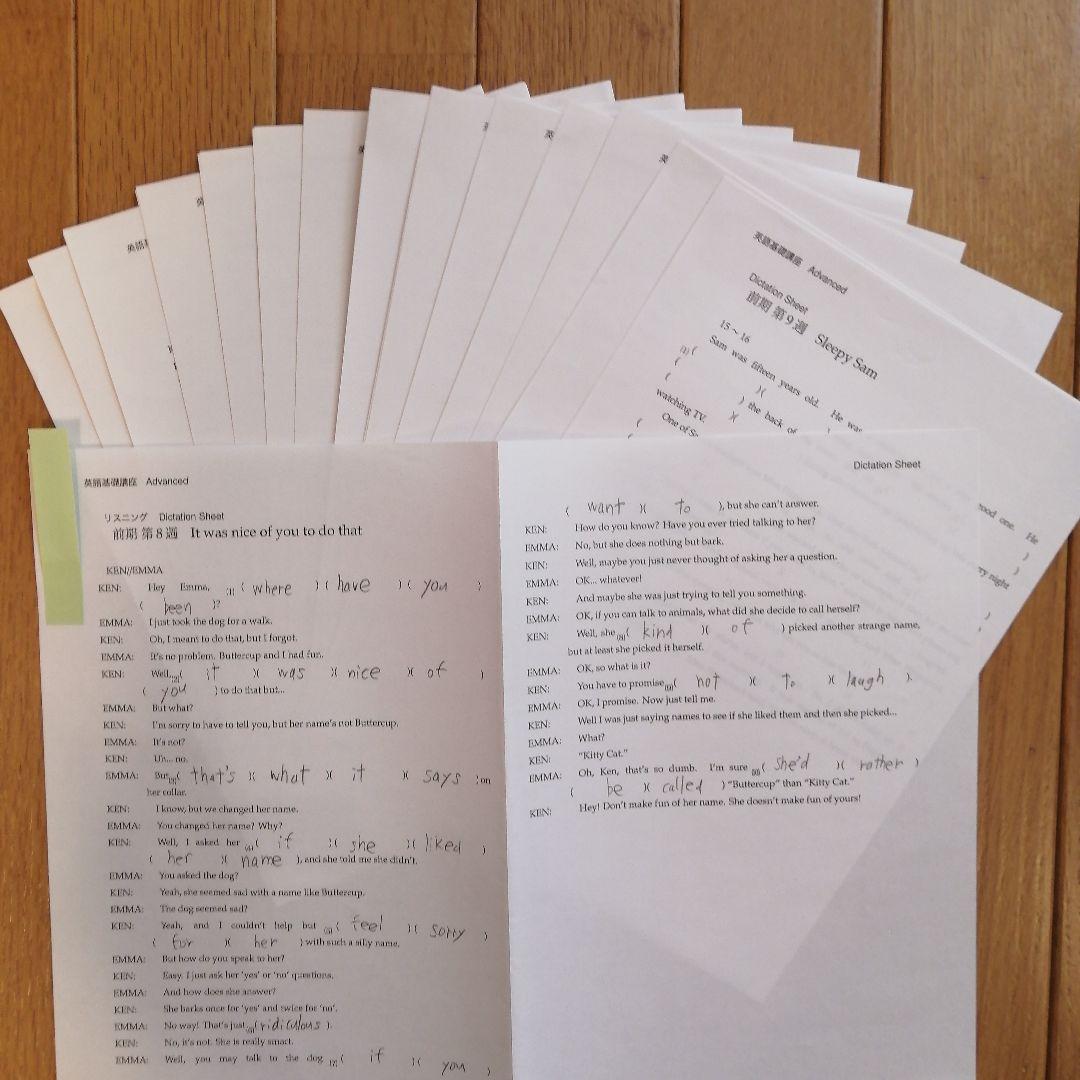 英語基礎講座 Advanced
リスニング Dictation Sheet
前期 第8週 It was nice of you to do that
KEN//EMMA
KEN: Hey Emma, [1]( where )( have )( you )
( been )?
EMMA: I just took the dog for a walk.
KEN: Oh, I meant to do that, but I forgot.
EMMA: It's no problem. Buttercup and I had fun.
KEN: Well, [2]( it )( was )( nice )( of )
( you ) to do that but...
EMMA: But what?
KEN: I'm sorry to have to tell you, but her name's not Buttercup.
EMMA: It's not?
KEN: Uh... no.
EMMA: But [3]( that's )( what )( it )( says ) on
her collar.
KEN: I know, but we changed her name.
EMMA: You changed her name? Why?
KEN: Well, I asked her [4]( if )( she )( liked )
( her )( name ), and she told me she didn't.
EMMA: You asked the dog?
KEN: Yeah, she seemed sad with a name like Buttercup.
EMMA: The dog seemed sad?
KEN: Yeah, and I couldn't help but [5]( feel )( sorry )
( for )( her ) with such a silly name.
EMMA: But how do you speak to her?
KEN: Easy. I just ask her 'yes' or 'no' questions.
EMMA: And how does she answer?
KEN: She barks once for 'yes' and twice for 'no'.
EMMA: No way! That's just [6]( ridiculous ).
KEN: No, it's not. She is really smart.
EMMA: Well, you may talk to the dog [7]( if )( you )
Dictation Sheet
( want )( to ), but she can't answer.
KEN: How do you know? Have you ever tried talking to her?
EMMA: No, but she does nothing but bark.
KEN: Well, maybe you just never thought of asking her a question.
EMMA: OK... whatever!
KEN: And maybe she was just trying to tell you something.
EMMA: OK, if you can talk to animals, what did she decide to call herself?
KEN: Well, she [8]( kind )( of ) picked another strange name,
but at least she picked it herself.
EMMA: OK, so what is it?
KEN: You have to promise [9]( not )( to )( laugh ).
EMMA: OK, I promise. Now just tell me.
KEN: Well I was just saying names to see if she liked them and then she picked...
EMMA: What?
KEN: "Kitty Cat."
EMMA: Oh, Ken, that's so dumb. I'm sure [10]( she'd )( rather )
( be )( called ) "Buttercup" than "Kitty Cat."
KEN: Hey! Don't make fun of her name. She doesn't make fun of yours!
英語基礎講座 Advanced
Dictation Sheet
前期 第9週 Sleepy Sam
15～16
Sam was fifteen years old. He was
m(
(
( )(
) the back of
watching TV. )(
One of
(
good one. He
night
)
)
英語
英
英
英
英